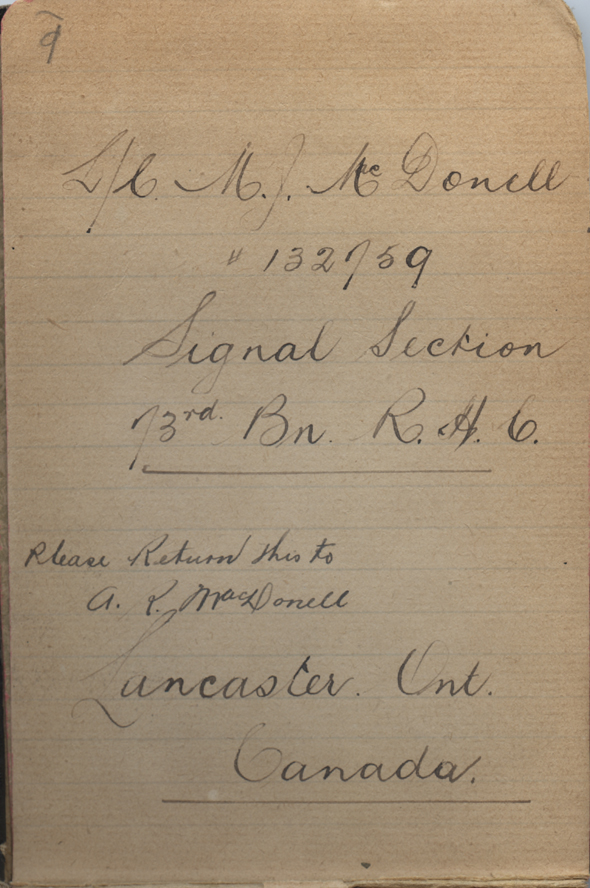 L/C. M. J. McDonell
" 132759
Signal Section
73rd. Bn. R. H. C.
Please Return this to
A. R. MacDonell
Lancaster. Ont.
Canada.